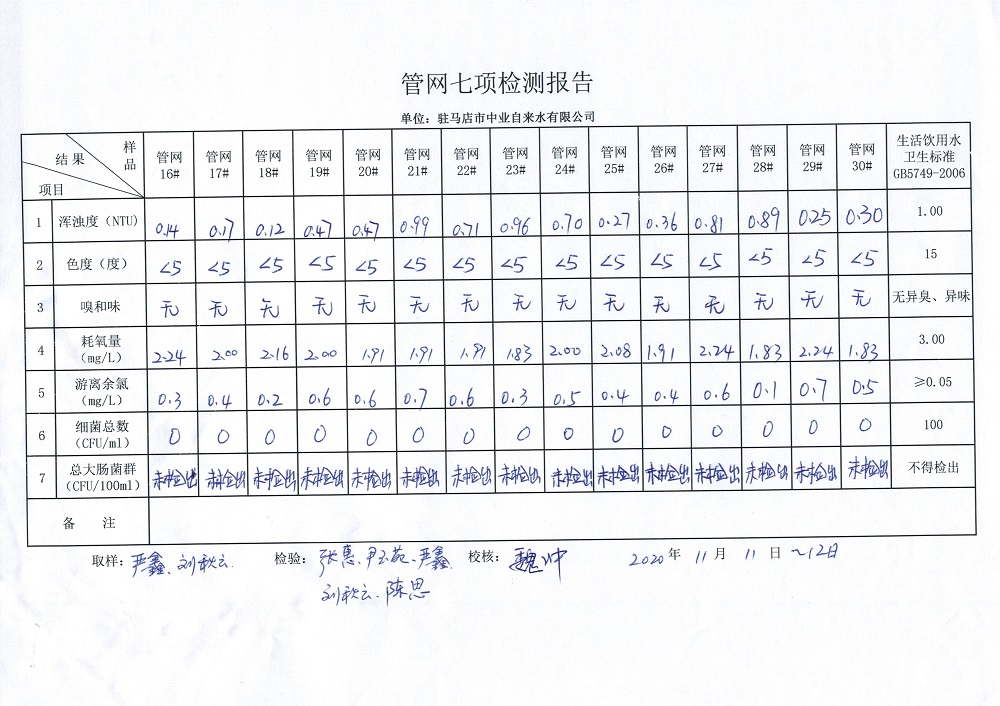 管网七项检测报告
单位：驻马店市中业自来水有限公司
结果 样品 项目 管网16# 管网17# 管网18# 管网19# 管网20# 管网21# 管网22# 管网23# 管网24# 管网25# 管网26# 管网27# 管网28# 管网29# 管网30# 生活饮用水卫生标准GB5749-2006
1 浑浊度（NTU） 0.14 0.17 0.12 0.47 0.47 0.99 0.71 0.96 0.70 0.27 0.36 0.81 0.89 0.25 0.30 1.00
2 色度（度） <5 <5 <5 <5 <5 <5 <5 <5 <5 <5 <5 <5 <5 <5 <5 15
3 嗅和味 无 无 无 无 无 无 无 无 无 无 无 无 无 无 无 无异臭、异味
4 耗氧量（mg/L） 2.24 2.00 2.16 2.00 1.91 1.91 1.91 1.83 2.00 2.08 1.91 2.24 1.83 2.24 1.83 3.00
5 游离余氯（mg/L） 0.3 0.4 0.2 0.6 0.6 0.7 0.6 0.3 0.5 0.4 0.4 0.6 0.1 0.7 0.5 ≥0.05
6 细菌总数（CFU/ml） 0 0 0 0 0 0 0 0 0 0 0 0 0 0 0 100
7 总大肠菌群（CFU/100ml） 未检出 未检出 未检出 未检出 未检出 未检出 未检出 未检出 未检出 未检出 未检出 未检出 未检出 未检出 未检出 不得检出
备 注
取样：严鑫、刘秋云 检验：张惠、尹玉苑、严鑫 校核：魏冲 2020年 11月 11日~12日
刘秋云、陈思